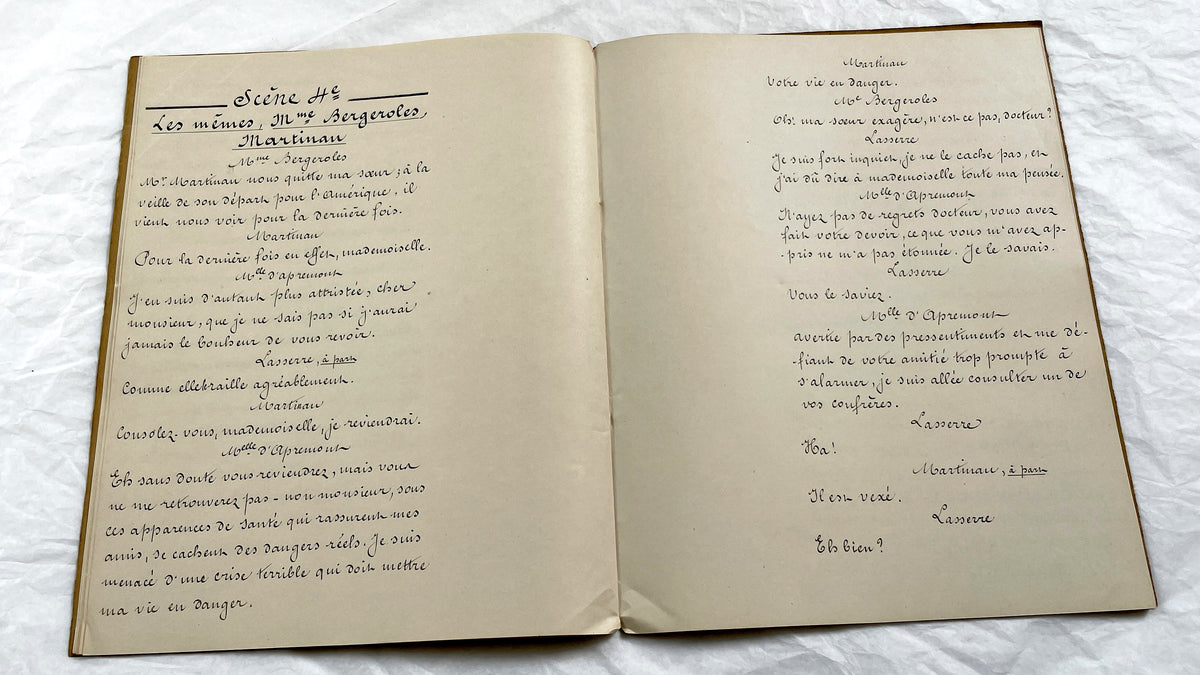 Scène 4e
Les mêmes, Mme Bergeroles,
Martinau
Mme Bergeroles
Mr Martinau nous quitte ma sœur; à la
veille de son départ pour l'Amérique, il
vient nous voir pour la dernière fois.
Martinau
Pour la dernière fois en effet, mademoiselle.
Melle d'apremont
J'en suis d'autant plus attristée, cher
monsieur, que je ne sais pas si j'aurai
jamais le bonheur de vous revoir.
Lasserre, à part
Comme elle braille agréablement.
Martinau
Consolez-vous, mademoiselle, je reviendrai.
Melle d'Apremont
Eh sans doute vous reviendrez, mais vous
ne me retrouverez pas - non monsieur, sous
ces apparences de santé qui rassurent mes
amis, se cachent des dangers réels. Je suis
menacé d'une crise terrible qui doit mettre
ma vie en danger.
Martinau
Votre vie en danger.
Me Bergeroles
Oh! ma sœur exagère, n'est ce pas, docteur?
Lasserre
Je suis fort inquiet, je ne le cache pas, et
j'ai dû dire à mademoiselle toute ma pensée.
Melle d'Apremont
N'ayez pas de regrets docteur, vous avez
fait votre devoir, ce que vous m'avez ap-
-pris ne m'a pas étonnée. Je le savais.
Lasserre
Vous le saviez.
Melle d'Apremont
avertie par des pressentiments et me dé-
-fiant de votre amitié trop prompte à
s'alarmer, je suis allée consulter un de
vos confrères.
Lasserre
Ha!
Martinau, à part
Il est vexé.
Lasserre
Eh bien?